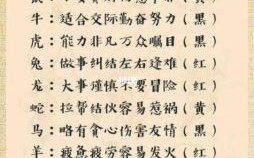 牛：适合交际勤奋努力（黑）
虎：能力非凡万众瞩目（黑）
兔：做事纠结左右逢难（红）
龙：大事谨慎不要冒险（红）
蛇：拉帮结伙容易惹祸（黄）
马：略有贪心伤害友情（黑）
羊：疲惫疲劳容易发火（红）